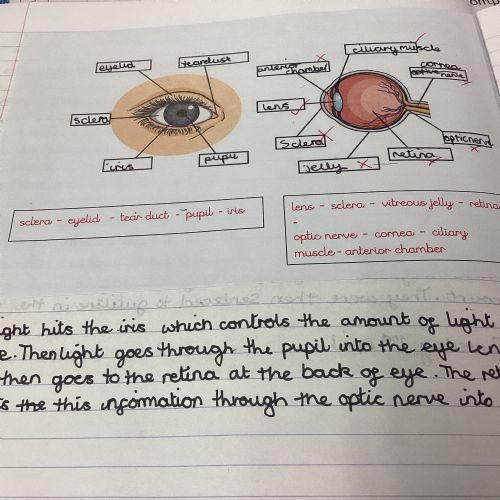 ciliary muscle
eyelid
teardust
anterior chamber
cornea
optic nerve
lens
sclera
sclera
optic nerve
iris
pupil
jelly
retina
sclera - eyelid - tear duct - pupil - iris
lens - sclera - vitreous jelly - retina
-
optic nerve - cornea - ciliary
muscle - anterior chamber
ght hits the iris which controls the amount of light
e. Then light goes through the pupil into the eye len
then goes to the retina at the back of eye. The ret
s the this information through the optic nerve into